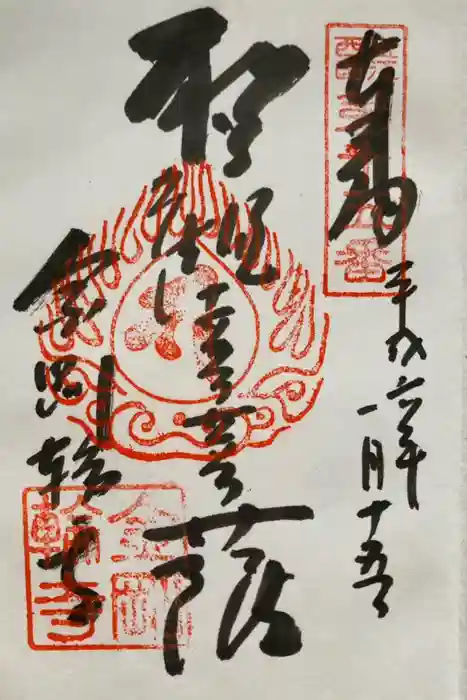 近江西国第十五番
奉拝
平成六年
一月十五日
聖観世音菩薩
金剛輪寺
金剛
輪寺